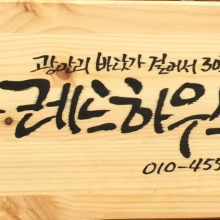 광안리 바닷가 걸어서 3
레스하우스
010-455